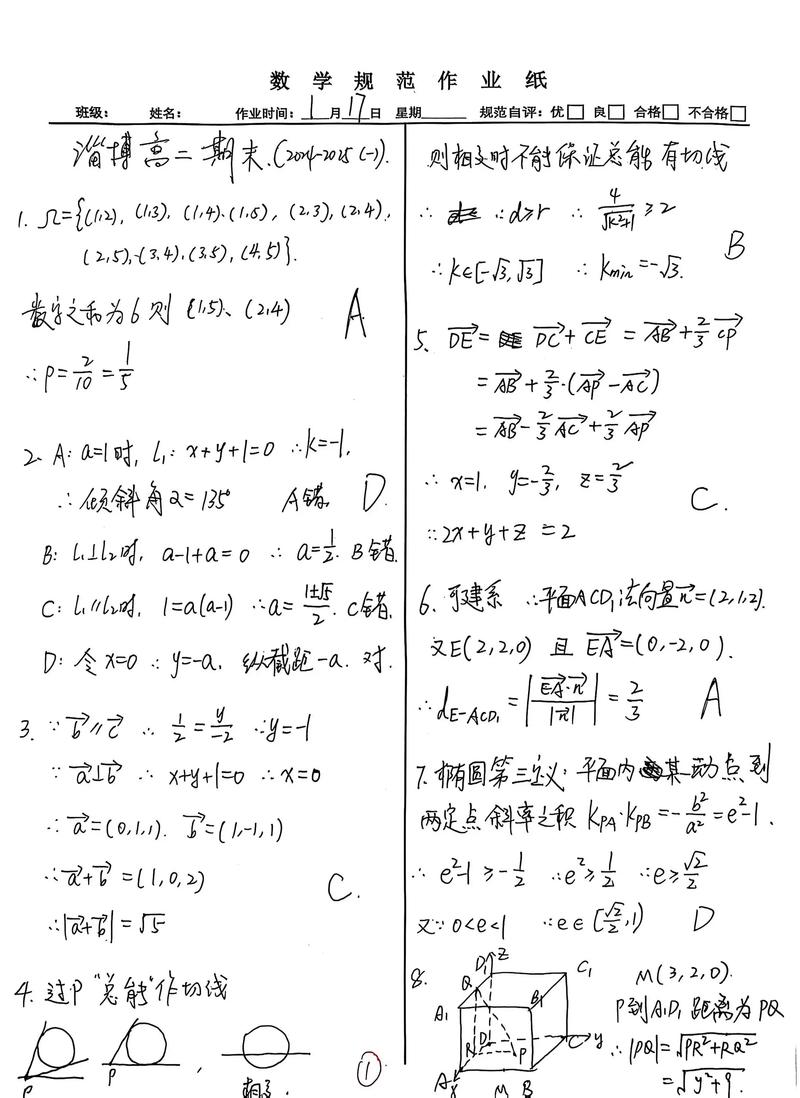 数学规范作业纸
班级： 姓名： 作业时间：1月17日 星期 规范自评：优□ 良□ 合格□ 不合格□
淄博高二期末.(2024-2025(一)).
1. Ω={(1,2), (1,3), (1,4),(1,5), (2,3),(2,4),
(2,5),(3,4),(3,5),(4,5)}.
数字之和为6则 (1,5)、(2,4) A
∴P=2/10=1/5
2. A: a=1时, l₁: x+y+1=0 ∴k=-1,
∴倾斜角α=135° A错. D.
B: l₁⊥l₂时, a-1+a=0 ∴ a=1/2. B错.
C: l₁∥l₂时, 1=a(a-1) ∴a=(1±√5)/2. C错.
D: 令x=0 ∴y=-a, 纵截距-a. 对.
3. ∵b⃗∥c⃗ ∴ 1/2=y/-2 ∴y=-1
∵ a⃗⊥b⃗ ∴ x+y+1=0 ∴x=0
∴a⃗=(0,1,1). b⃗=(1,-1,1)
∴a⃗+b⃗=(1,0,2) C.
∴|a⃗+b⃗|=√5
4. 过P“总能”作切线
P P , 相交.
①
则相交时不能保证总能有切线
∴ ∵d≥r ∴ 4/√(k²+1)≥2 B
∴k∈[-√3,√3] ∴ kmin=-√3.
5. DE⃗= DC⃗+CE⃗ =AB⃗+2/3CP⃗
=AB⃗+2/3·(AP⃗-AC⃗)
=AB⃗-2/3AC⃗+2/3AP⃗
∴ x=1, y=-2/3, z=2/3 C.
∴2x+y+z=2
6. 可建系 ∴平面ACD₁法向量n⃗=(2,1,2).
又E(2,2,0) 且 EA⃗=(0,-2,0).
∴dE-ACD₁=|EA⃗·n⃗/|n⃗||=2/3 A
7. 椭圆第三定义: 平面内某动点到
两定点斜率之积 kPA·kPB=-b²/a²=e²-1.
∴ e²-1≥-1/2 ∴e²≥1/2 ∴e≥√2/2
又∵0<e<1 ∴e∈[√2/2,1) D
8. D₁ z C₁ Q A₁ B₁ D C y R P A x M B
M(3,2,0).
P到A₁D₁距离为PQ
∴|PQ|=√(PR²+RQ²)
=√(y²+9).